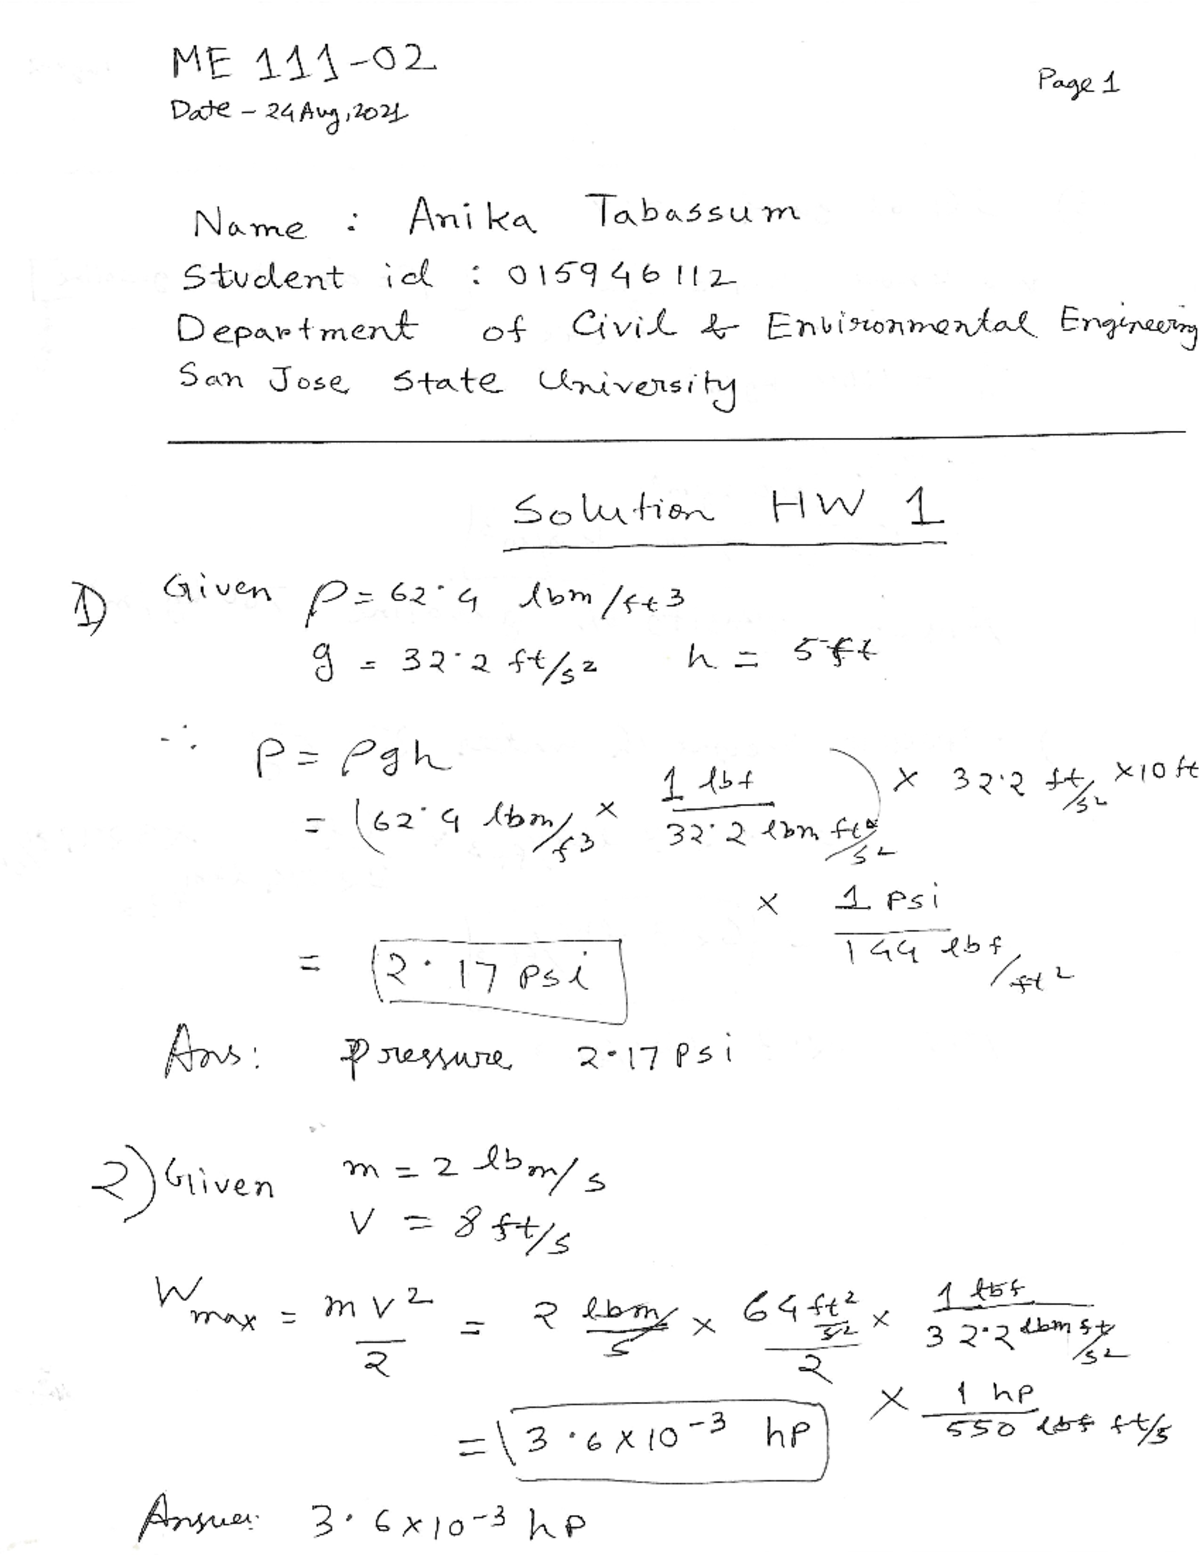 ME 111-02
Page 1
Date - 24 Aug, 2021
Name : Anika Tabassum
Student id : 015946112
Department of Civil & Environmental Engineering
San Jose State University
Solution HW 1
1) Given ρ = 62.4 lbm/ft3
g = 32.2 ft/s2 h = 5 ft
∴ P = ρgh
= (62.4 lbm/f3 × 1 lbf / 32.2 lbm ft/s2) × 32.2 ft/s2 × 10 ft
× 1 psi / 144 lbf/ft2
= 2.17 psi
Ans: Pressure 2.17 Psi
2) Given m = 2 lbm/s
V = 8 ft/s
Wmax = mv2 / 2 = 2 lbm/s × 64 ft2/s2 / 2 × 1 lbf / 32.2 lbm ft/s2
× 1 hp / 550 lbf ft/s
= 3.6 × 10-3 hp
Answer: 3.6 × 10-3 hp